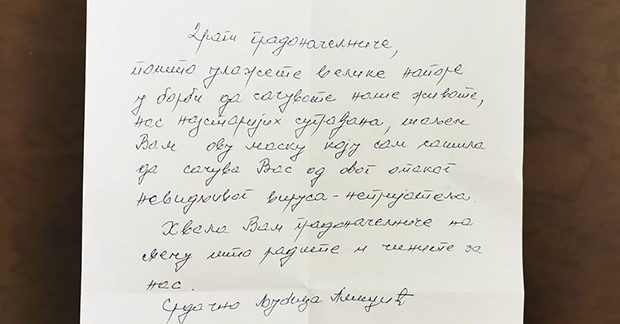 Драги градоначелниче,
пошто улажете велике напоре
у борби да сачувате наше животе,
нас најстаријих суграђана, шаљем
Вам ову маску коју сам сашила
да сачува Вас од овог опаког
невидљивог вируса - непријатеља.
Хвала Вам градоначелниче на
свему што радите и чините за
нас.
Срдачно Љубица